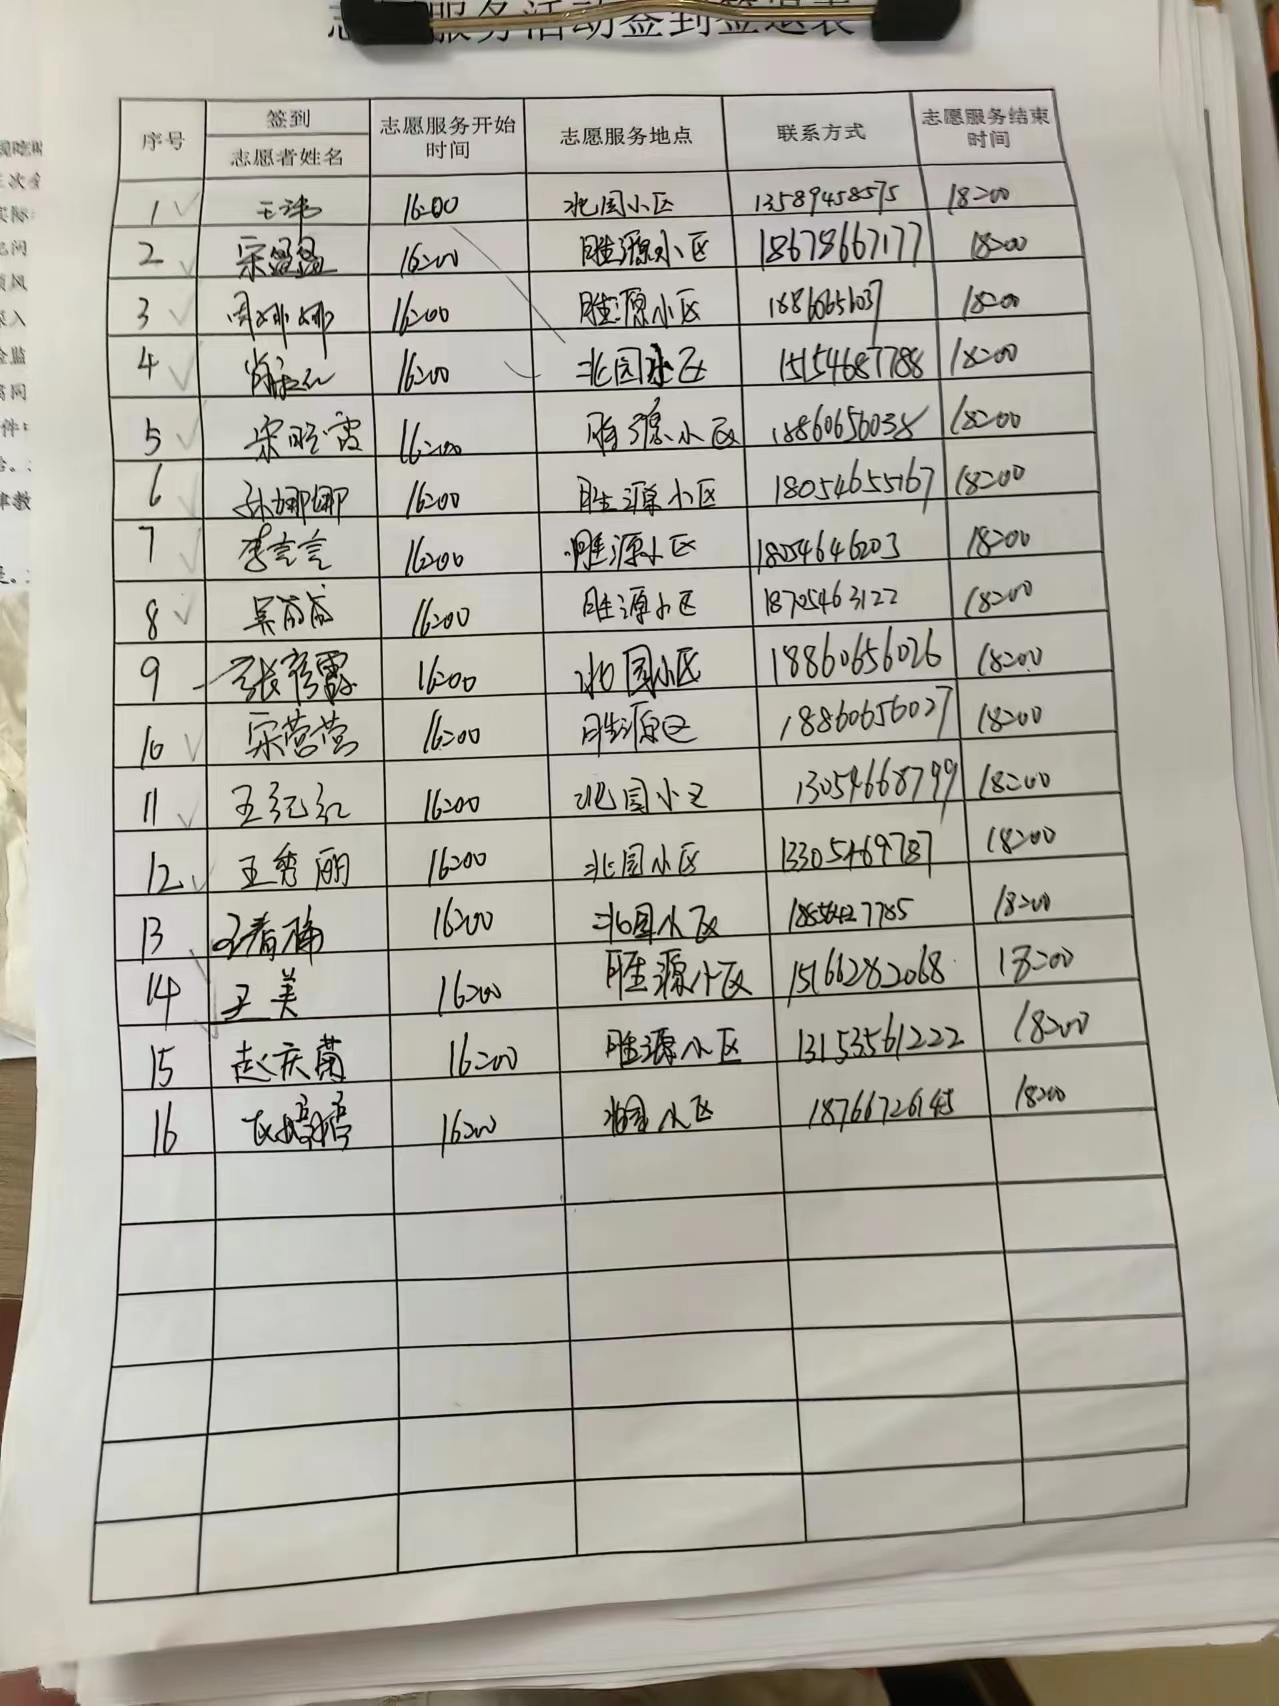 志愿服务活动签到签退表
序号 签到 志愿者姓名 志愿服务开始时间 志愿服务地点 联系方式 志愿服务结束时间
1 王沛 16:00 北园小区 13589458575 18:00
2 宋盈盈 16:00 胜源小区 18678667177 18:00
3 周娜娜 16:00 胜源小区 18:00
4 16:00 北园小区 15154687788 18:00
5 宋晓霞 16:00 胜源小区 18860656038 18:00
6 孙娜娜 16:00 胜源小区 18054655167 18:00
7 李言言 16:00 胜源小区 18054646203 18:00
8 吴苗苗 16:00 胜源小区 18705463122 18:00
9 张彦霞 16:00 北园小区 18860656026 18:00
10 宋营营 16:00 胜源区 18860656027 18:00
11 王纪红 16:00 北园小区 13054668799 18:00
12 王秀丽 16:00 北园小区 13305469787 18:00
13 王春 16:00 北园小区 18:00
14 王美 16:00 胜源小区 15166282068 18:00
15 赵庆菊 16:00 胜源小区 13153561222 18:00
16 16:00 北园小区 18766726145 18:00